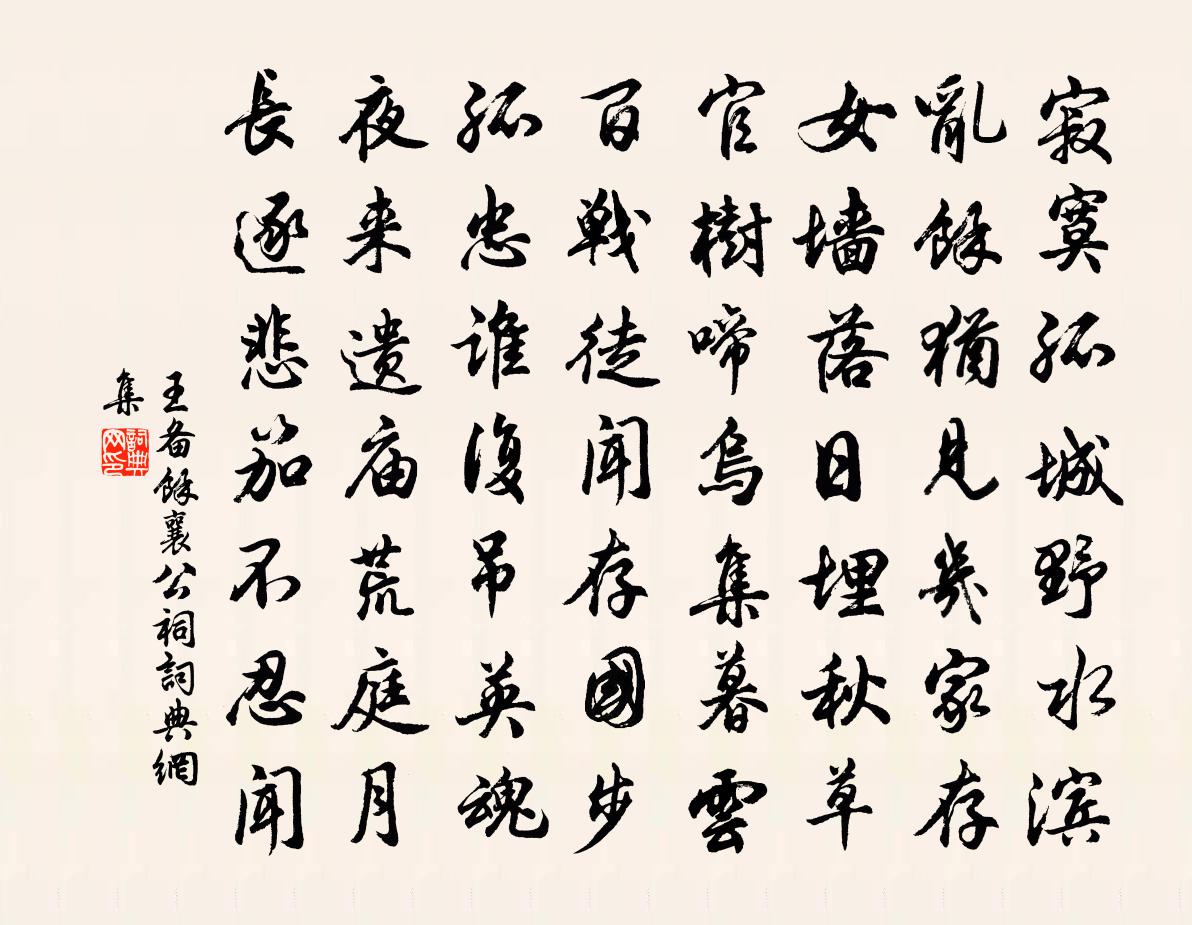 寂寞孤城野水滨
亂餘猶見幾家存
女墙落日埋秋草
官樹啼烏集暮雲
百戰徒闻存國步
孤忠谁復吊英魂
夜来遗庙荒庭月
長逐悲笳不忍闻
王备餘襄公祠詞典網
集
詞典网印